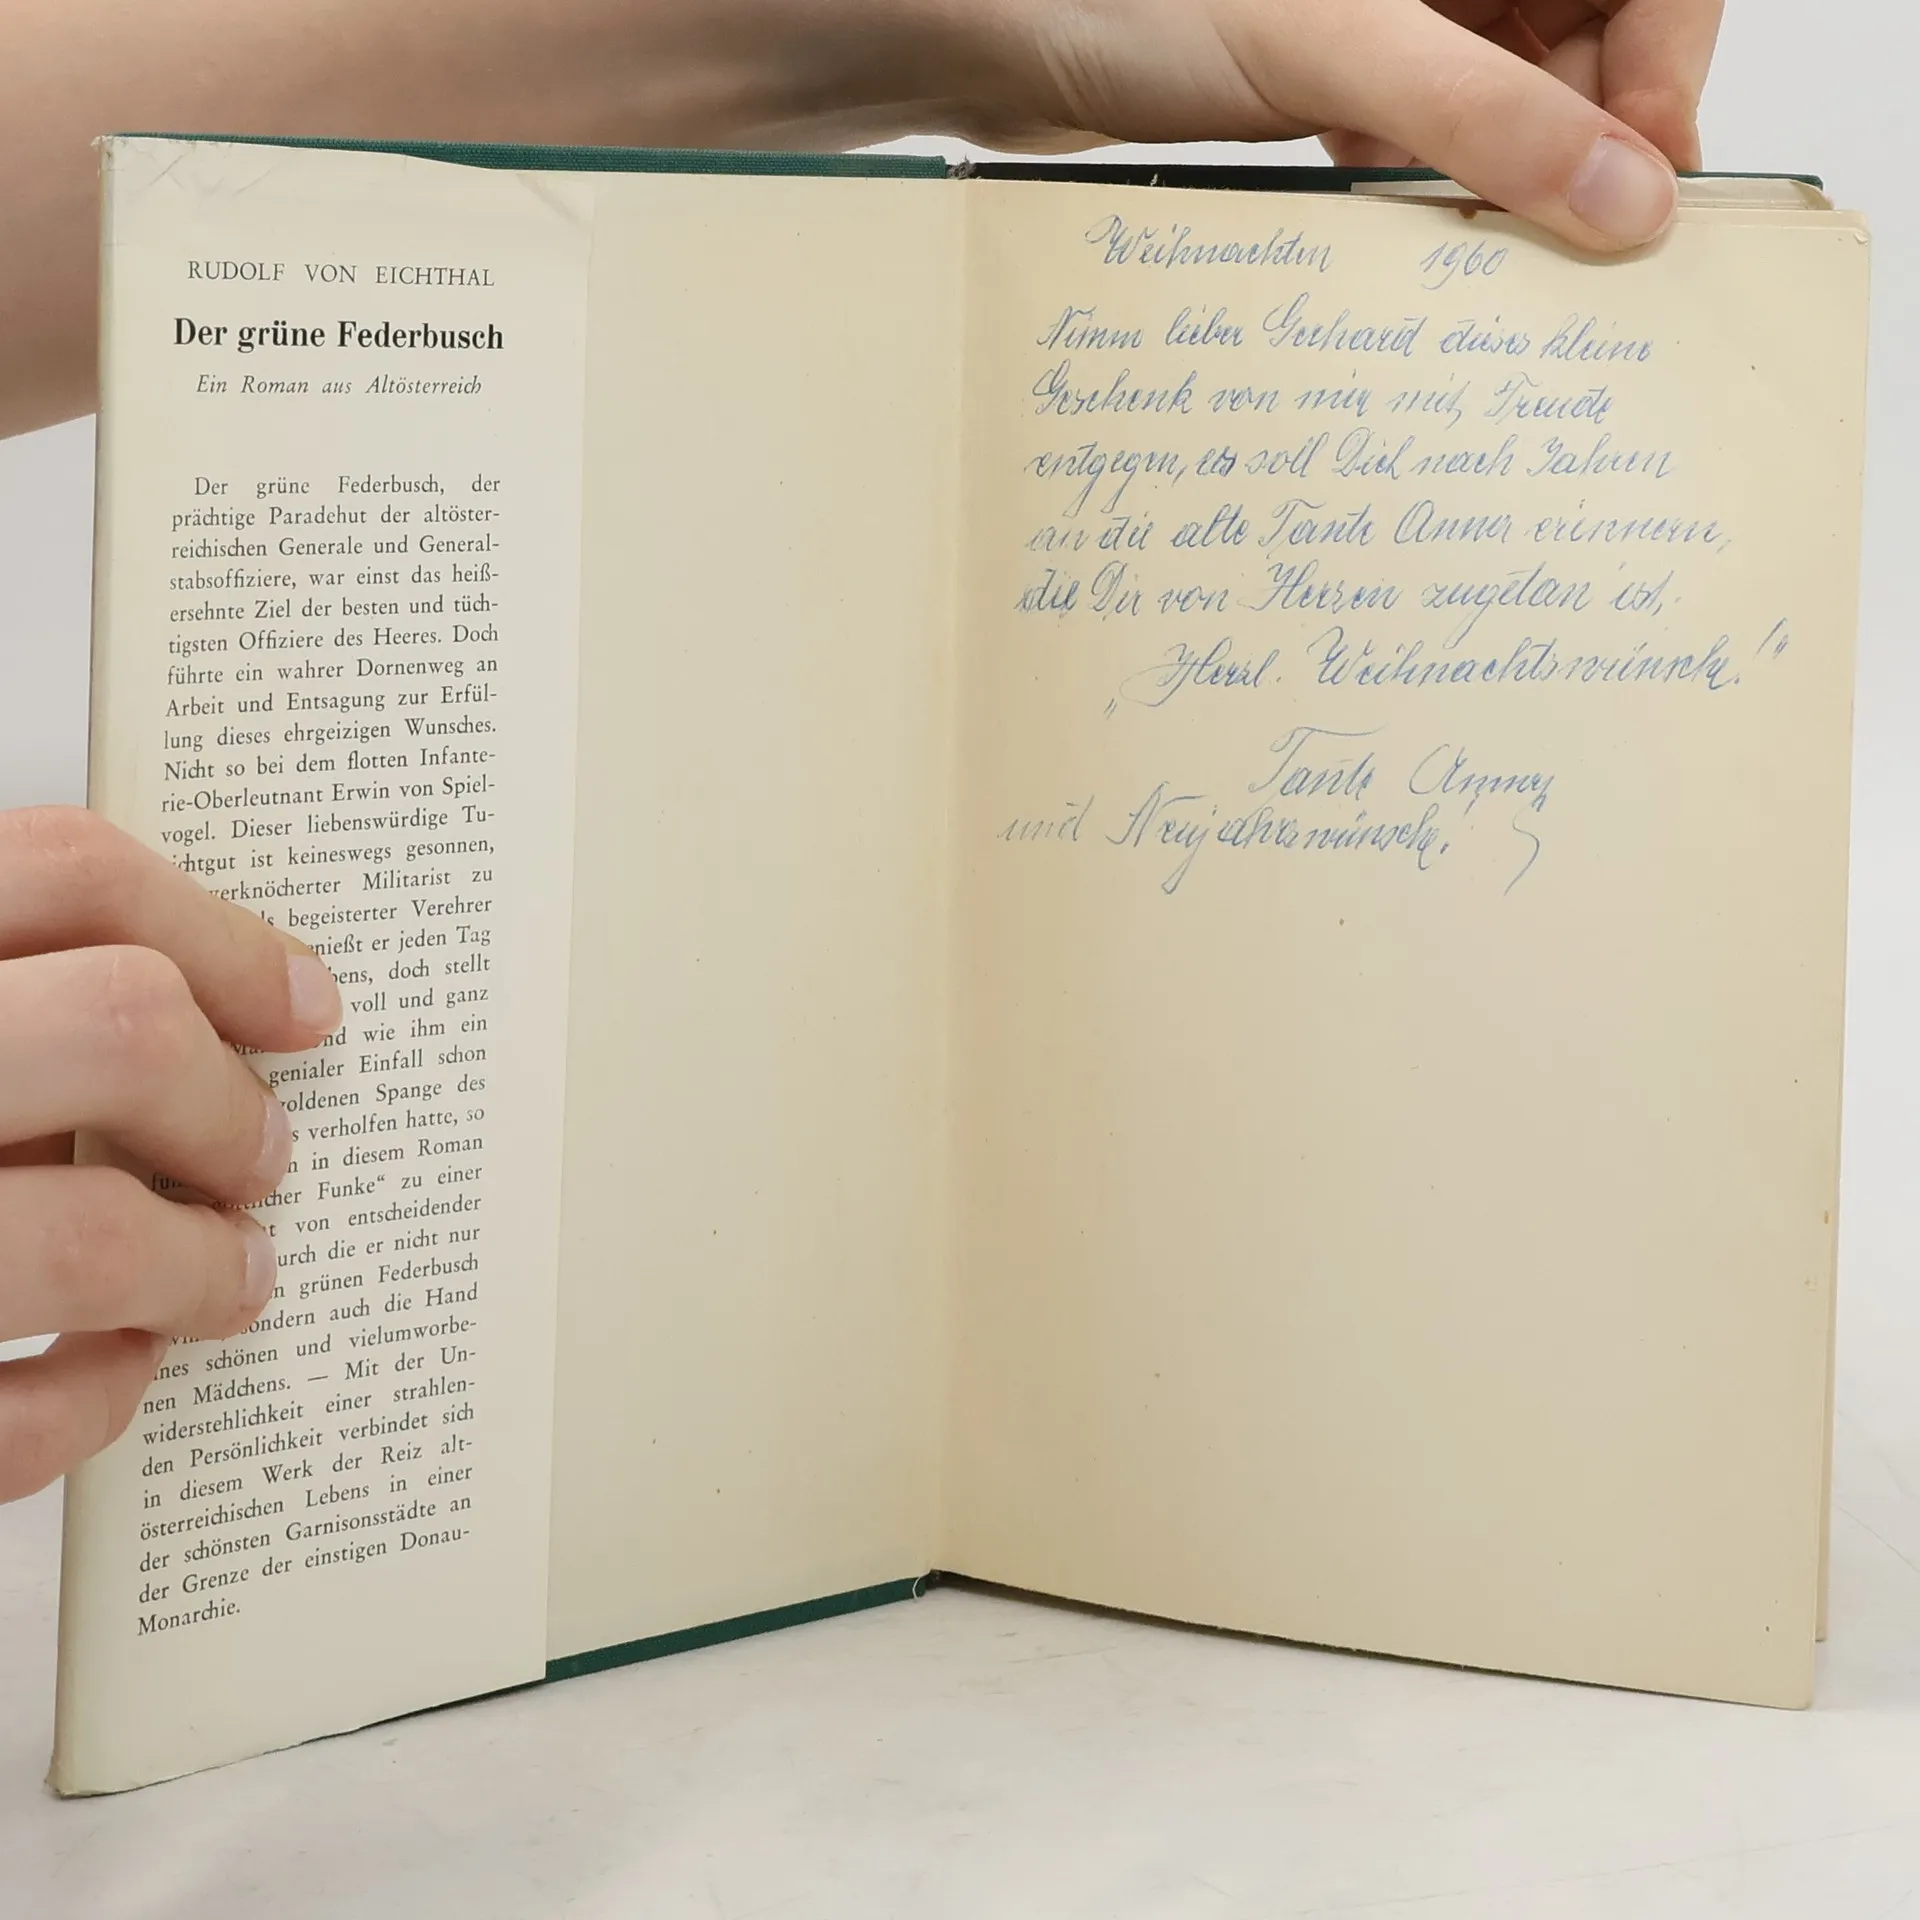 RUDOLF VON EICHTHAL
Der grüne Federbusch
Ein Roman aus Altösterreich
Der grüne Federbusch, der
prächtige Paradehut der altöster-
reichischen Generale und General-
stabsoffiziere, war einst das heiß-
ersehnte Ziel der besten und tüch-
tigsten Offiziere des Heeres. Doch
führte ein wahrer Dornenweg an
Arbeit und Entsagung zur Erfül-
lung dieses ehrgeizigen Wunsches.
Nicht so bei dem flotten Infante-
rie-Oberleutnant Erwin von Spiel-
vogel. Dieser liebenswürdige Tu-
ichtgut ist keineswegs gesonnen,
verknöcherter Militarist zu
begeisterter Verehrer
er jeden Tag
doch stellt
voll und ganz
wie ihm ein
genialer Einfall schon
goldenen Spange des
verholfen hatte, so
in diesem Roman
Funke“ zu einer
von entscheidender
die er nicht nur
grünen Federbusch
sondern auch die Hand
schönen und vielumworbe-
nen Mädchens. — Mit der Un-
widerstehlichkeit einer strahlen-
den Persönlichkeit verbindet sich
in diesem Werk der Reiz alt-
österreichischen Lebens in einer
der schönsten Garnisonsstädte an
der Grenze der einstigen Donau-
Monarchie.
Weihnachten 1960
Nimm lieber Gerhard dieses kleine
Geschenk von mir mit Freude
entgegen, es soll Dich nach Jahren
an die alte Tante Anna erinnern,
die Dir von Herzen zugetan ist,
„Herzl. Weihnachtswünsche!“
Tante Anny
und Neujahrswünsche!